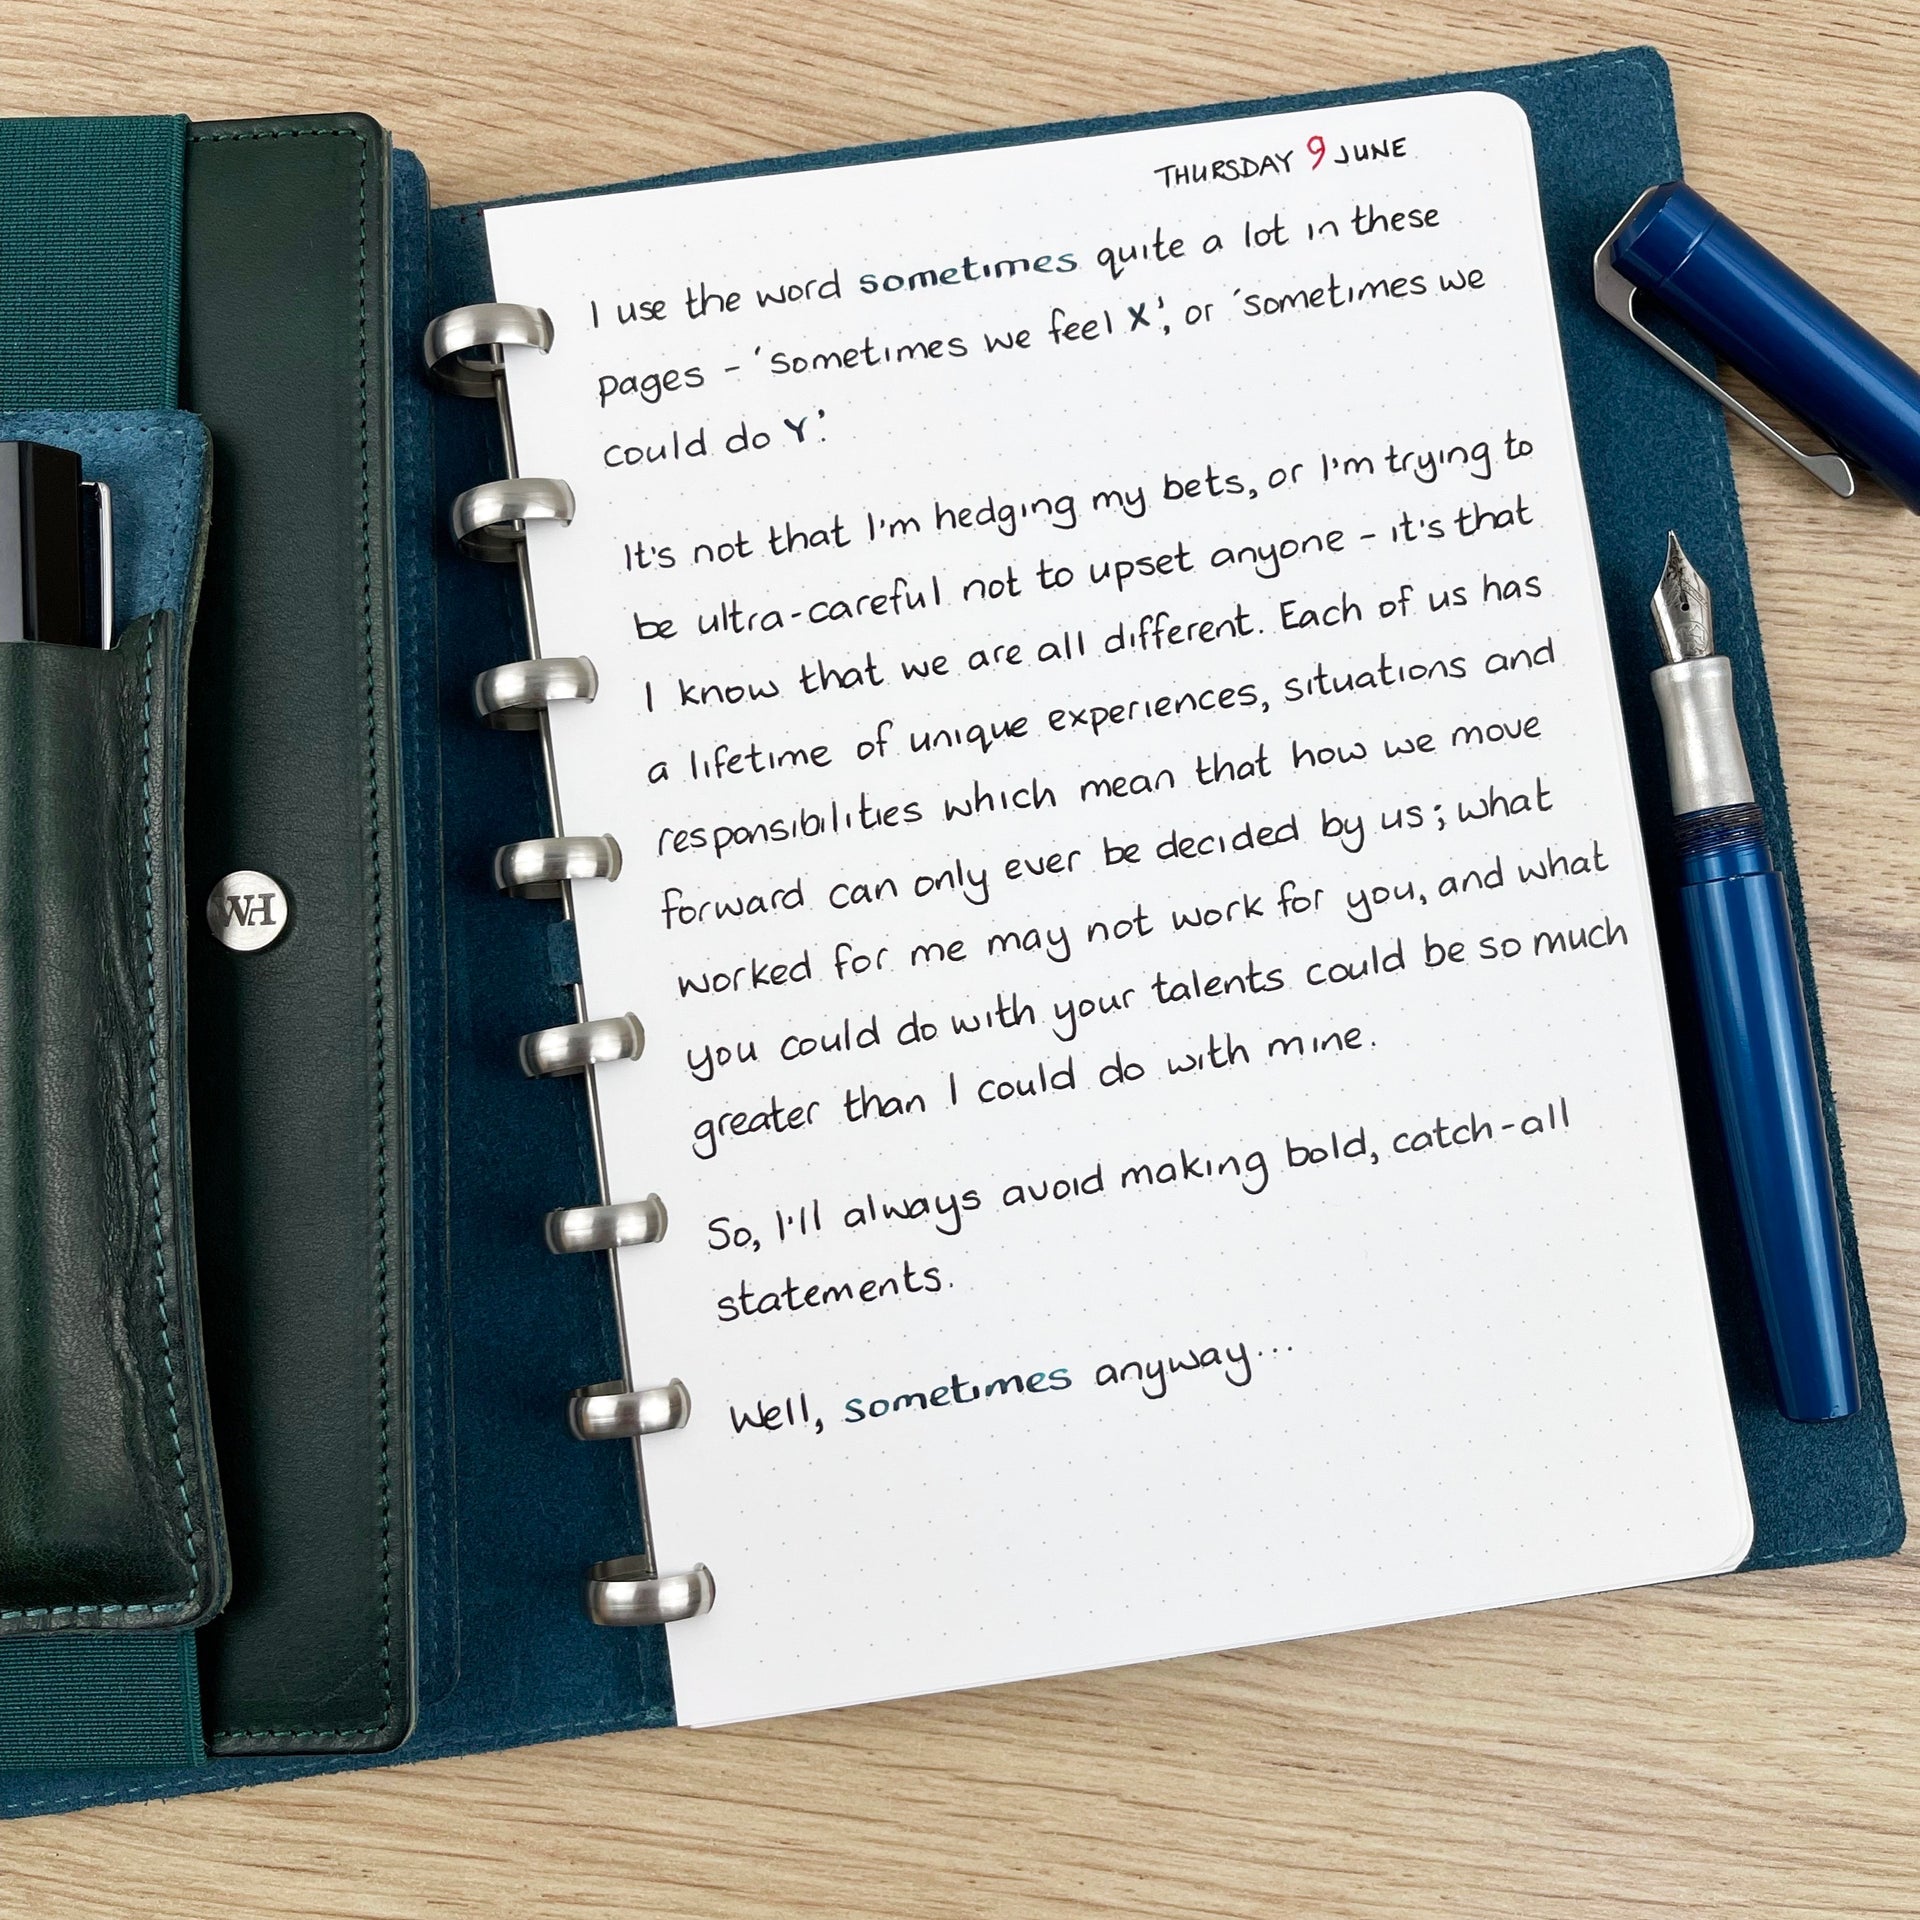 THURSDAY 9 JUNE
I use the word sometimes quite a lot in these
pages - 'Sometimes we feel X', or 'Sometimes we
could do Y'.
It's not that I'm hedging my bets, or I'm trying to
be ultra-careful not to upset anyone - it's that
I know that we are all different. Each of us has
a lifetime of unique experiences, situations and
responsibilities which mean that how we move
forward can only ever be decided by us; what
worked for me may not work for you, and what
you could do with your talents could be so much
greater than I could do with mine.
So, I'll always avoid making bold, catch-all
statements.
Well, sometimes anyway...
WH